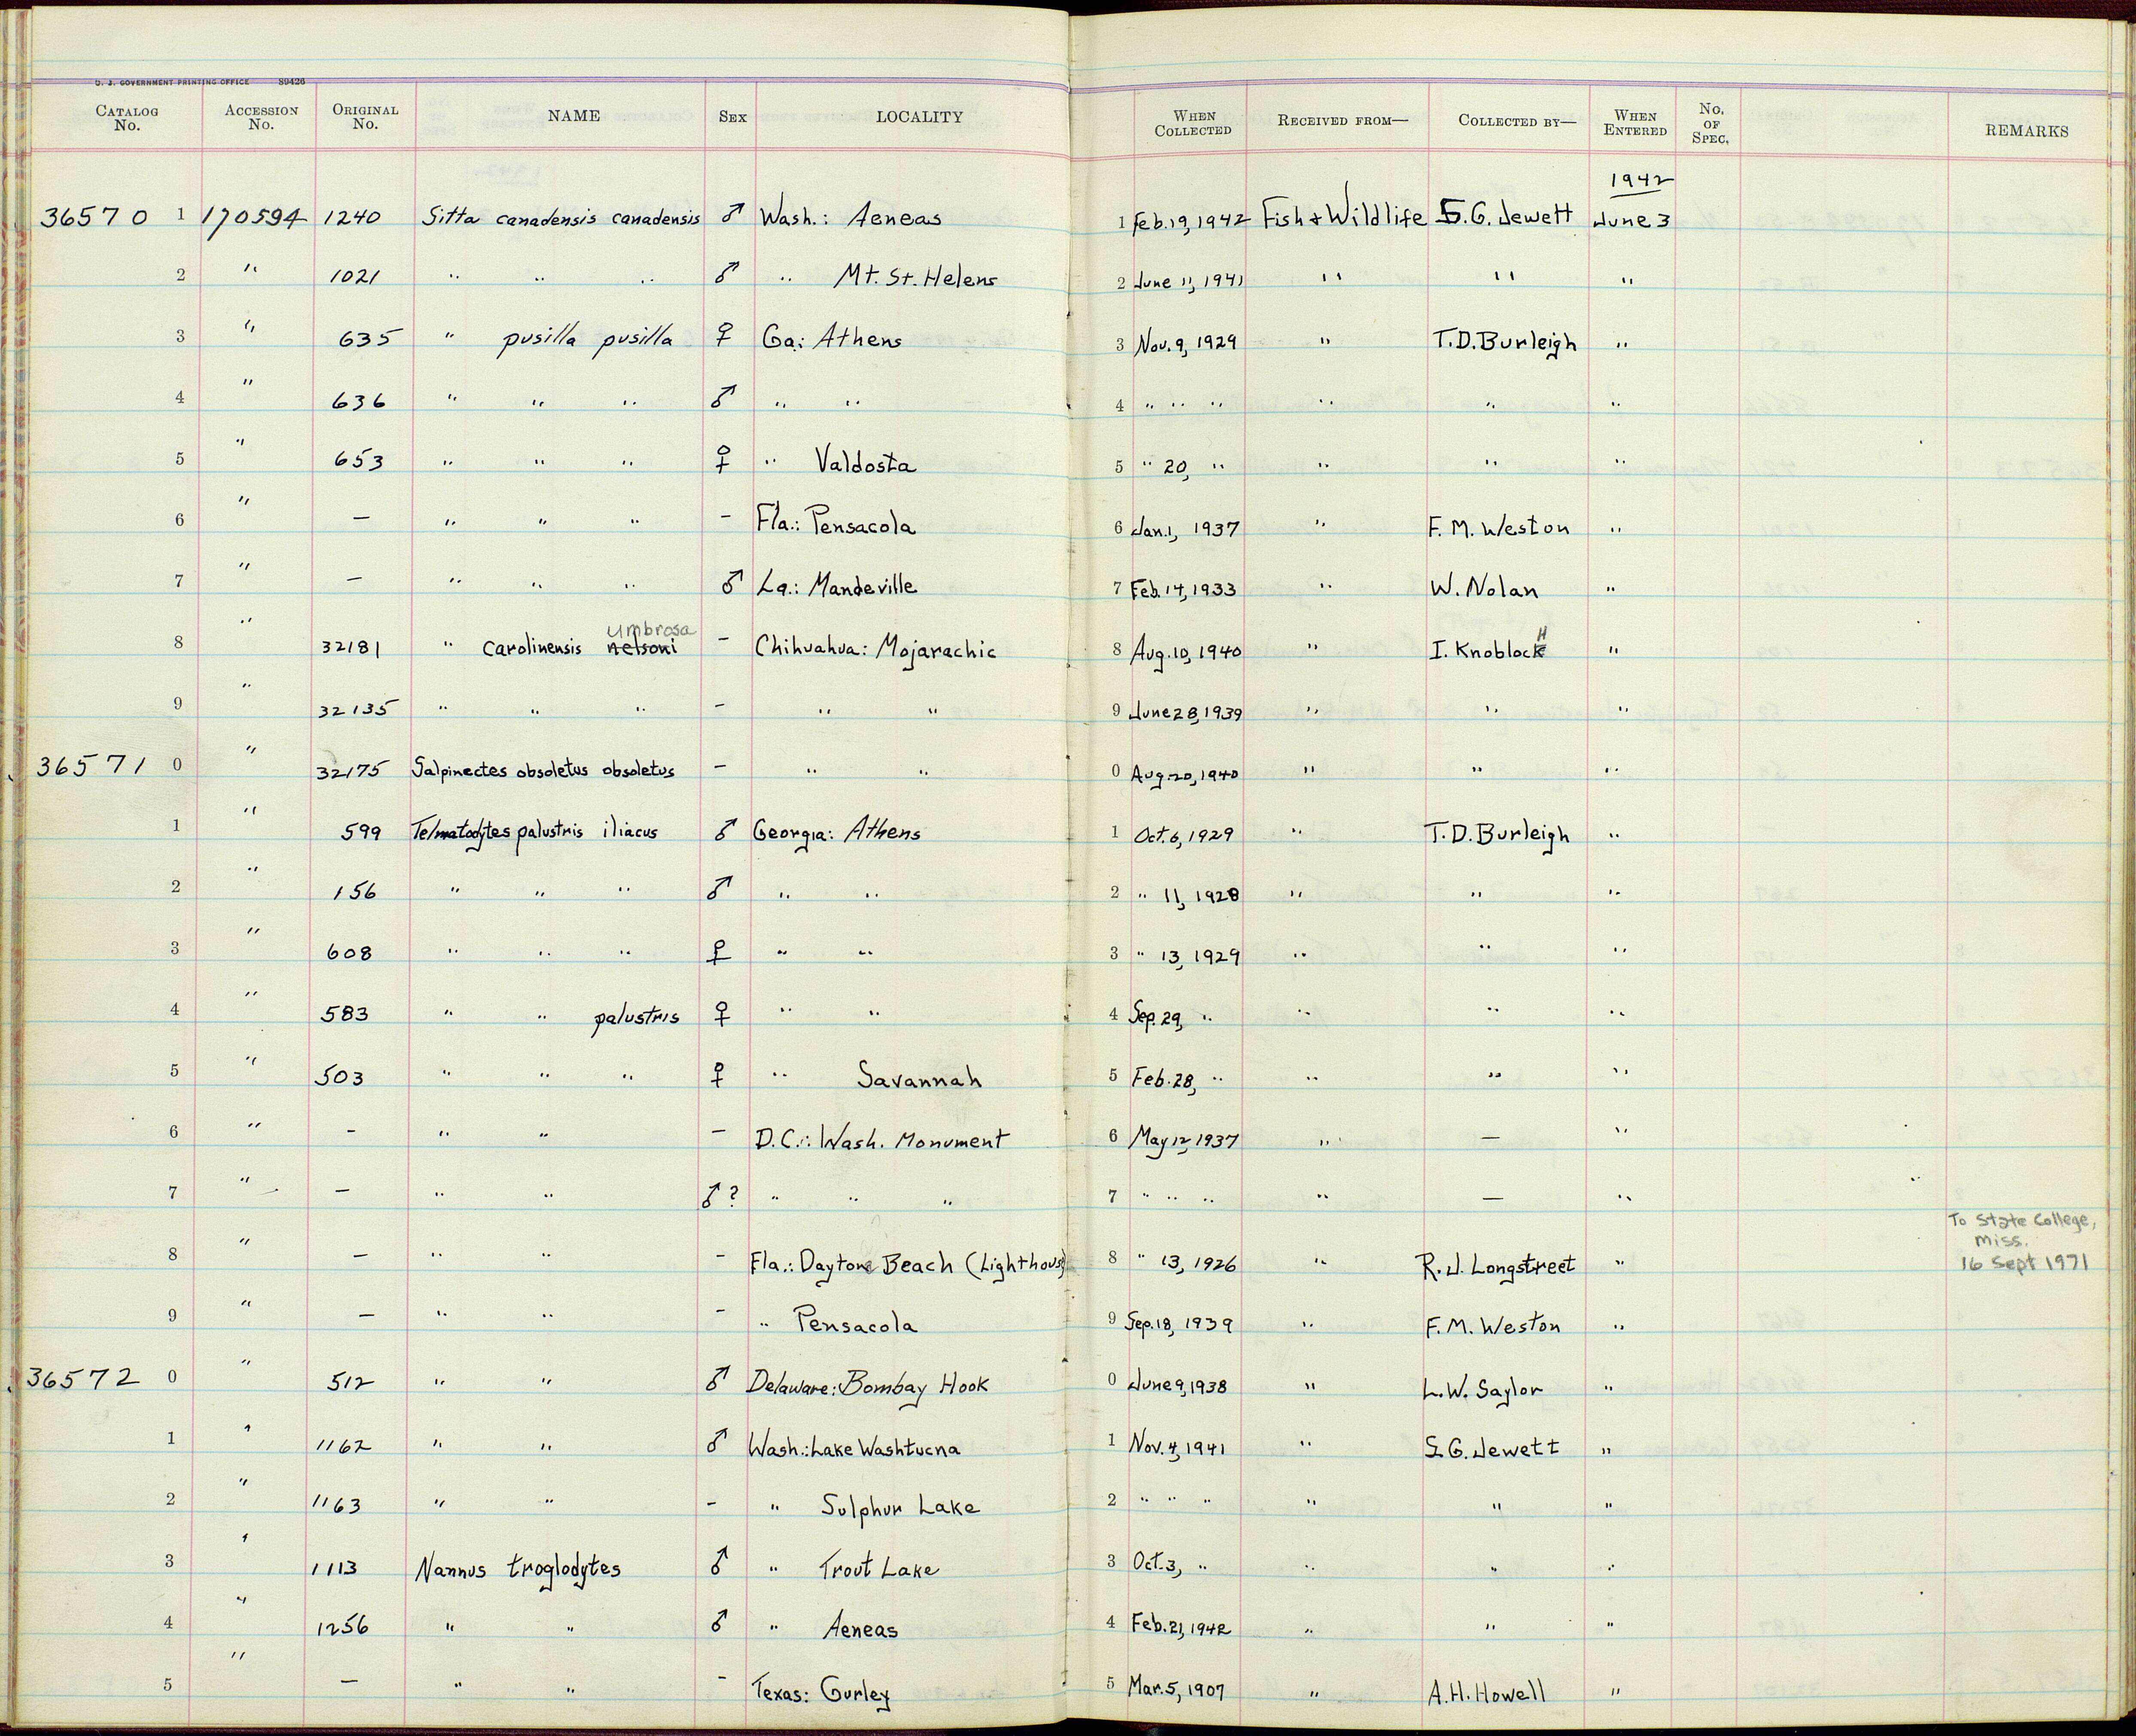 U. S. GOVERNMENT PRINTING OFFICE 89426
CATALOG No. ACCESSION No. ORIGINAL No. NAME SEX LOCALITY WHEN COLLECTED RECEIVED FROM— COLLECTED BY— WHEN ENTERED No. OF SPEC. REMARKS
1942
36570 1 170594 1240 Sitta canadensis canadensis ♂ Wash.: Aeneas 1 Feb. 19, 1942 Fish & Wildlife S. G. Jewett June 3
2 " 1021 " " " ♂ " Mt. St. Helens 2 June 11, 1941 " " "
3 " 635 " pusilla pusilla ♀ Ga.: Athens 3 Nov. 9, 1929 " T. D. Burleigh "
4 " 636 " " " ♂ " " 4 " " " " " "
5 " 653 " " " ♀ " Valdosta 5 " 20, " " " "
6 " — " " " - Fla.: Pensacola 6 Jan. 1, 1937 " F. M. Weston "
7 " — " " " ♂ La.: Mandeville 7 Feb. 14, 1933 " W. Nolan "
umbrosa H
8 " 32181 " carolinensis nelsoni - Chihuahua: Mojarachic 8 Aug. 10, 1940 " I. Knoblock "
9 " 32135 " " " - " " 9 June 28, 1939 " " "
36571 0 " 32175 Salpinectes obsoletus obsoletus - " " 0 Aug. 20, 1940 " " "
1 " 599 Telmatodytes palustris iliacus ♂ Georgia: Athens 1 Oct. 6, 1929 " T. D. Burleigh "
2 " 156 " " " ♂ " " 2 " 11, 1928 " " "
3 " 608 " " " ♀ " " 3 " 13, 1929 " " "
4 " 583 " " palustris ♀ " " 4 Sep. 29, " " " "
5 " 503 " " " ♀ " Savannah 5 Feb. 28, " " " "
6 " - " " - D.C.: Wash. Monument 6 May 12, 1937 " — "
7 " — " " ♂? " " " 7 " " " " — "
To State College,
Miss.
8 " — " " - Fla.: Daytona Beach (Lighthouse) 8 " 13, 1926 " R. J. Longstreet " 16 Sept 1971
9 " — " " - " Pensacola 9 Sep. 18, 1939 " F. M. Weston "
36572 0 " 512 " " ♂ Delaware: Bombay Hook 0 June 9, 1938 " L. W. Saylor "
1 " 1162 " " ♂ Wash.: Lake Washtucna 1 Nov. 4, 1941 " S. G. Jewett "
2 " 1163 " " - " Sulphur Lake 2 " " " " " "
3 " 1113 Nannus troglodytes ♂ " Trout Lake 3 Oct. 3, " " " "
4 " 1256 " " ♂ " Aeneas 4 Feb. 21, 1942 " " "
5 " — " " - Texas: Gurley 5 Mar. 5, 1907 " A. H. Howell "